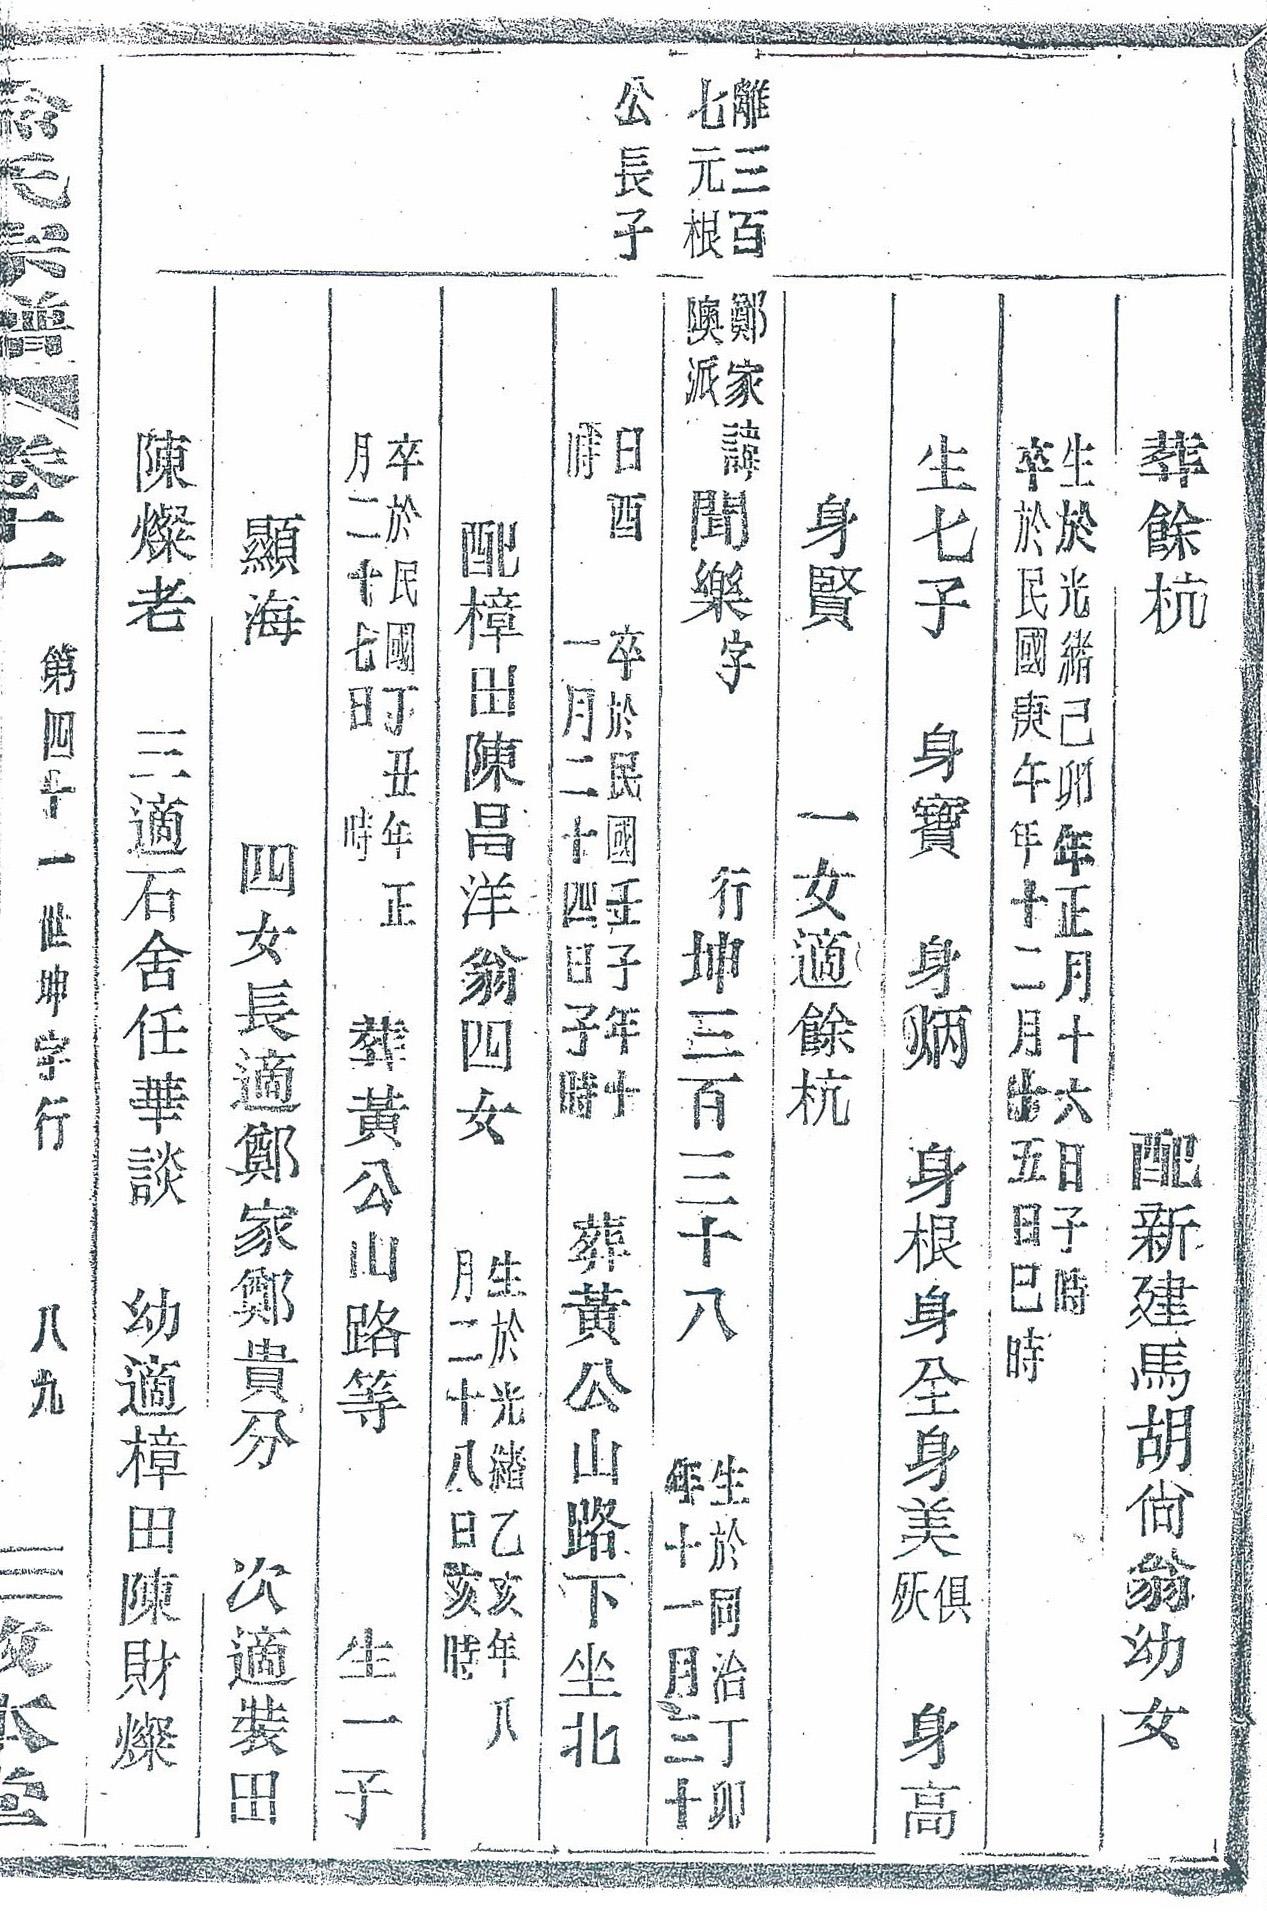 離三百
七元根
公長子
葬餘杭 配新建馬胡尙翁幼女
生於光緒己卯年正月十六日子時
卒於民國庚午年十二月廿五日巳時
生七子 身寶 身炳 身根身全身美俱殀 身高
身賢 一女適餘杭
鄭家
隩派
諱聞樂字 行坤三百三十八 生於同治丁卯
年十一月三十
日酉
時
卒於民國壬子年十
一月二十四日子時
葬黃公山路下坐北
配樟田陳昌洋翁四女 生於光緒乙亥年八
月二十八日亥時
卒於民國丁丑年正
月二十七日 時
葬黃公山路等 生一子
顯海 四女長適鄭家鄭貴分 次適裝田
陳燦老 三適石舍任華談 幼適樟田陳財燦
氏宗譜 卷十一 第四十一世坤字行 八九 敦本堂